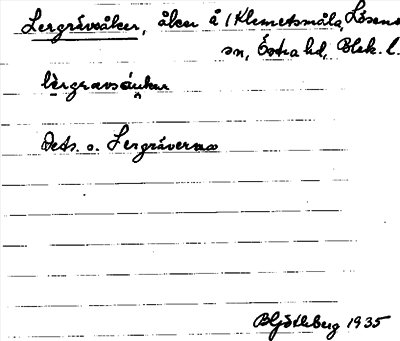 Lergravsåker, åker å 1 Klemetsmåla, Lösens
sn, Östra hd, Blek. l.
lèrgravsåukar
Dets. o. Lergravarna
B Götleberg 1935